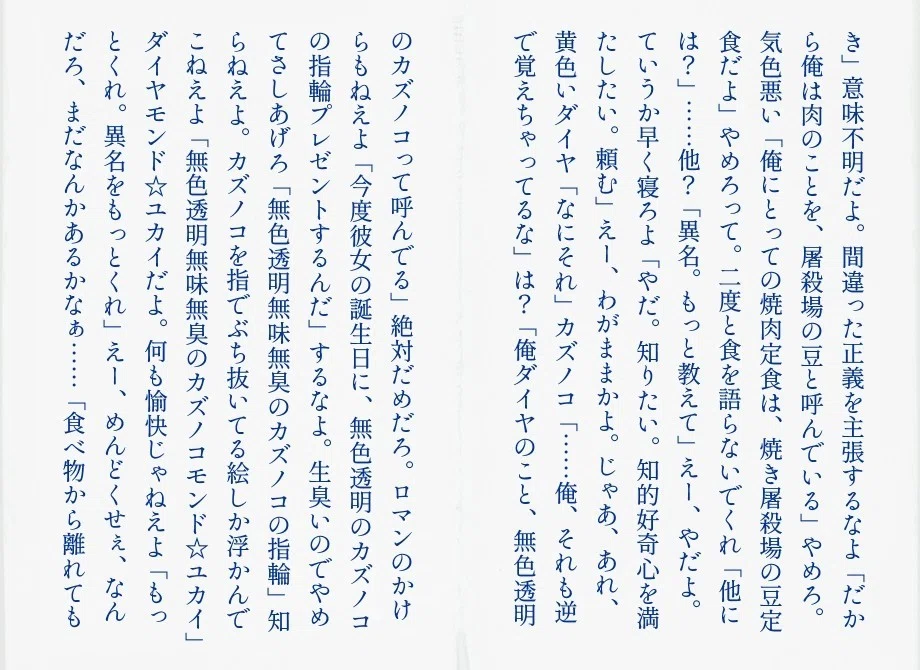 き」意味不明だよ。間違った正義を主張するなよ「だか
ら俺は肉のことを、屠殺場の豆と呼んでいる」やめろ。
気色悪い「俺にとっての焼肉定食は、焼き屠殺場の豆定
食だよ」やめろって。二度と食を語らないでくれ「他に
は？」……他？「異名。もっと教えて」えー、やだよ。
ていうか早く寝ろよ「やだ。知りたい。知的好奇心を満
たしたい。頼む」えー、わがままかよ。じゃあ、あれ、
黄色いダイヤ「なにそれ」カズノコ「……俺、それも逆
で覚えちゃってるな」は？「俺ダイヤのこと、無色透明
のカズノコって呼んでる」絶対だめだろ。ロマンのかけ
らもねえよ「今度彼女の誕生日に、無色透明のカズノコ
の指輪プレゼントするんだ」するなよ。生臭いのでやめ
てさしあげろ「無色透明無味無臭のカズノコの指輪」知
らねえよ。カズノコを指でぶち抜いてる絵しか浮かんで
こねえよ「無色透明無味無臭のカズノコモンド☆ユカイ」
ダイヤモンド☆ユカイだよ。何も愉快じゃねえよ「もっ
とくれ。異名をもっとくれ」えー、めんどくせぇ、なん
だろ、まだなんかあるかなぁ……「食べ物から離れても